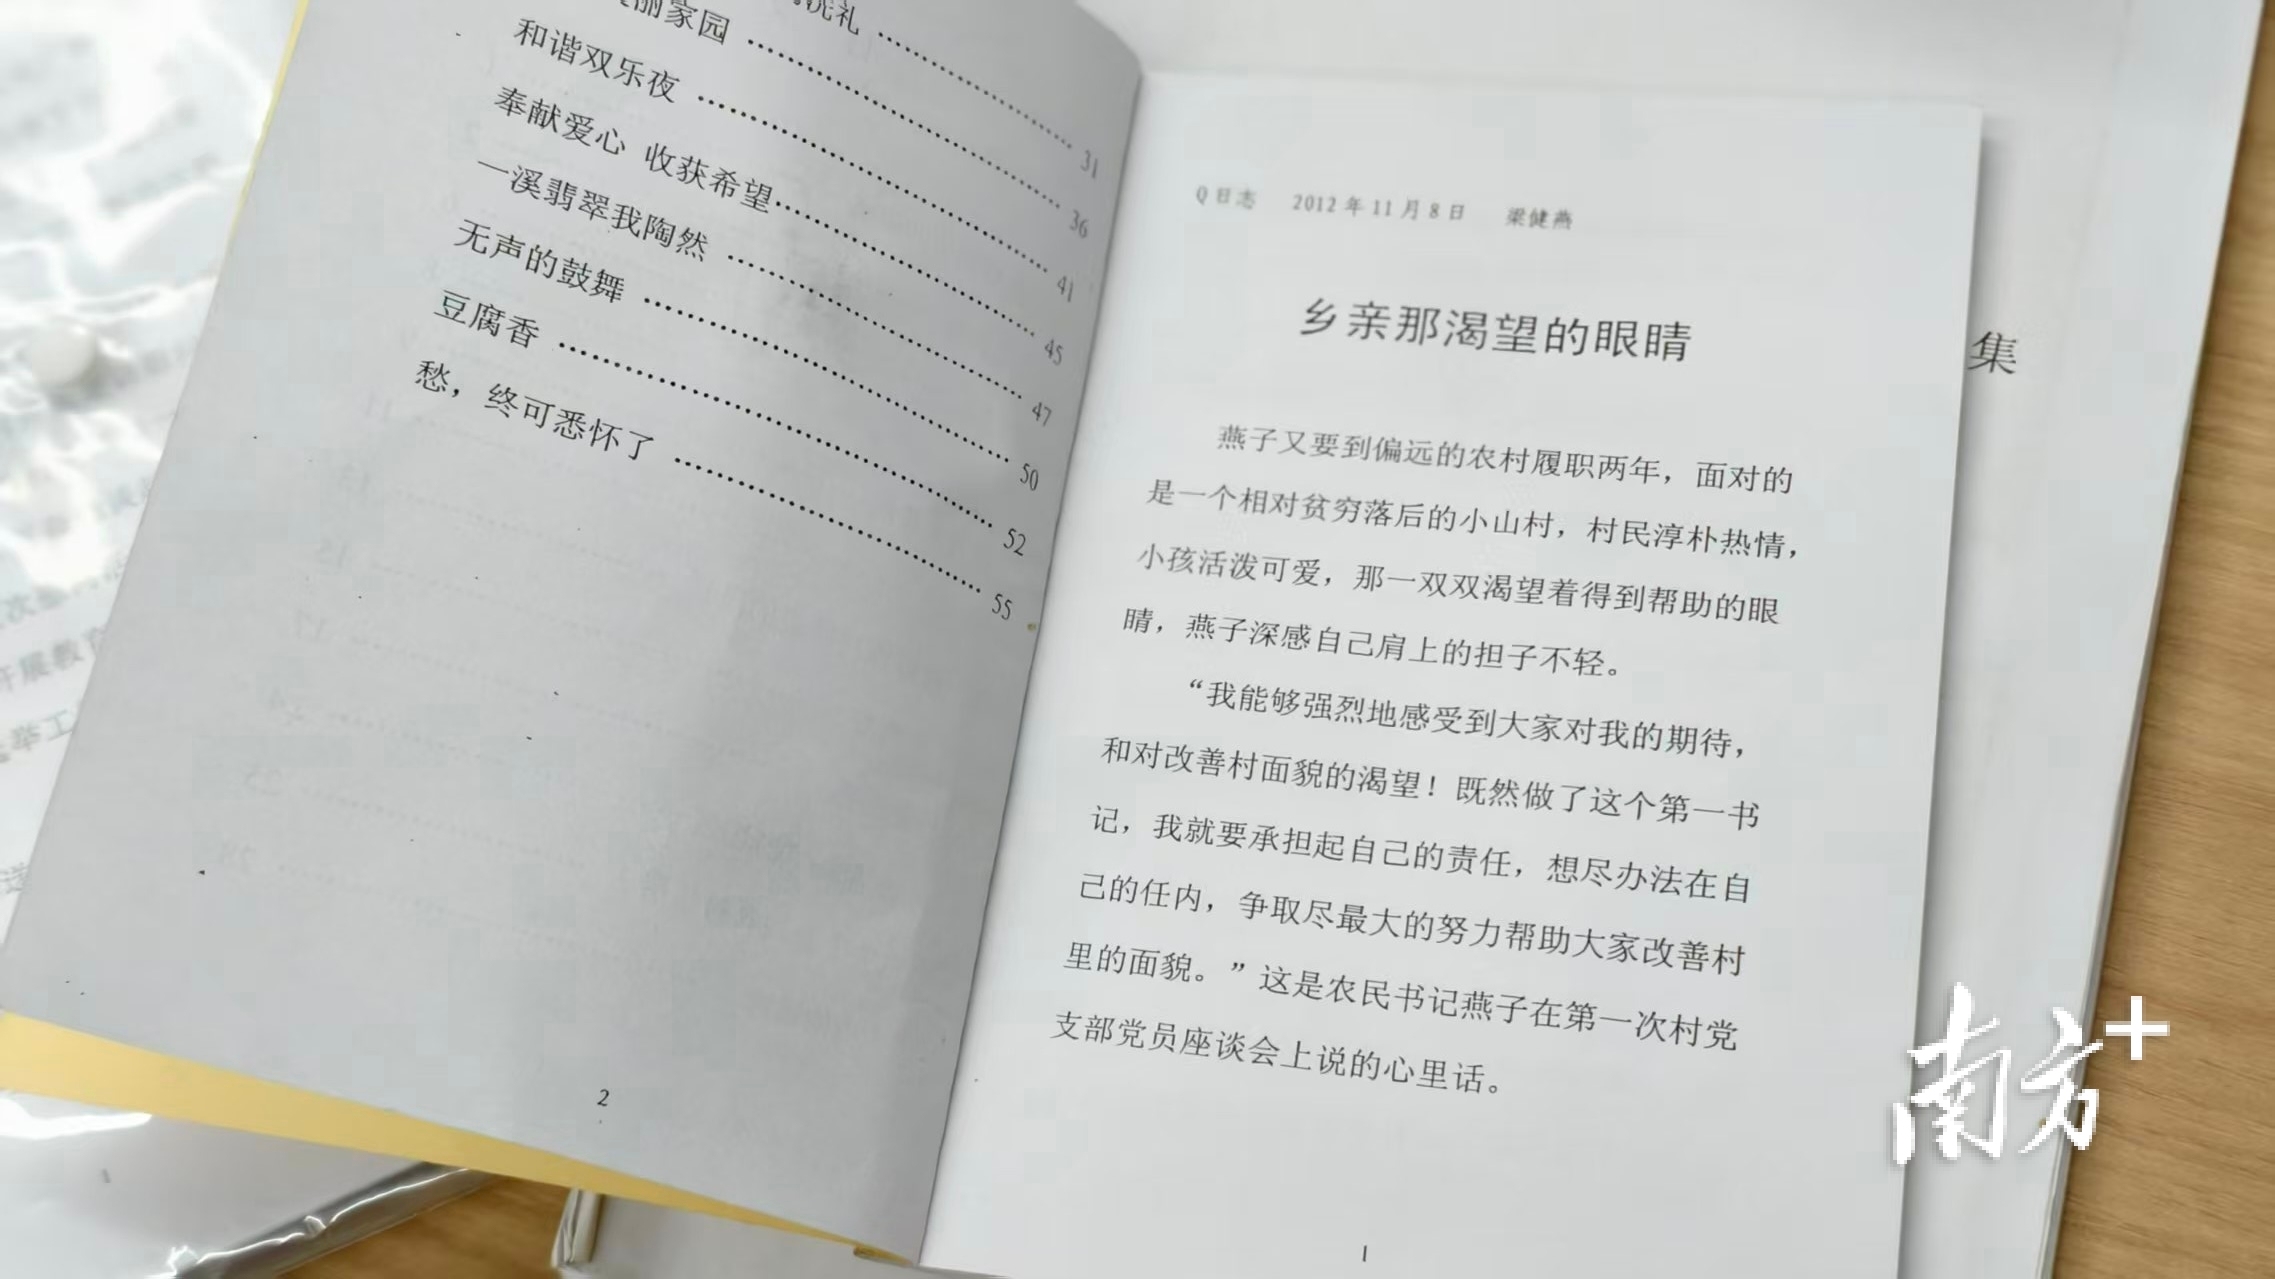 洗礼 31
丽家园 36
和谐双乐夜 41
奉献爱心 收获希望 45
一溪翡翠我陶然 47
无声的鼓舞 50
豆腐香 52
愁，终可悉怀了 55
2
Q日志 2012年11月8日 梁健燕
乡亲那渴望的眼睛
燕子又要到偏远的农村履职两年，面对的
是一个相对贫穷落后的小山村，村民淳朴热情，
小孩活泼可爱，那一双双渴望着得到帮助的眼
睛，燕子深感自己肩上的担子不轻。
“我能够强烈地感受到大家对我的期待，
和对改善村面貌的渴望！既然做了这个第一书
记，我就要承担起自己的责任，想尽办法在自
己的任内，争取尽最大的努力帮助大家改善村
里的面貌。”这是农民书记燕子在第一次村党
支部党员座谈会上说的心里话。
1
集
南方+